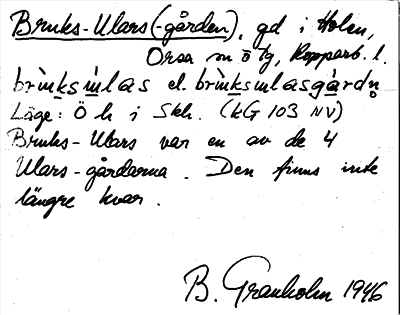 Bruks-Ulars(-gården), gd i Holen,
Orsa sn o tg, Kopparb. l.
brùksùlas el. brùksulasgàrdn
Läge: Ö h i Skh. (kG 103 NV)
Bruks-Ulars var en av de 4
Ulars-gårdarna. Den finns inte
längre kvar.
B. Granholm 1946